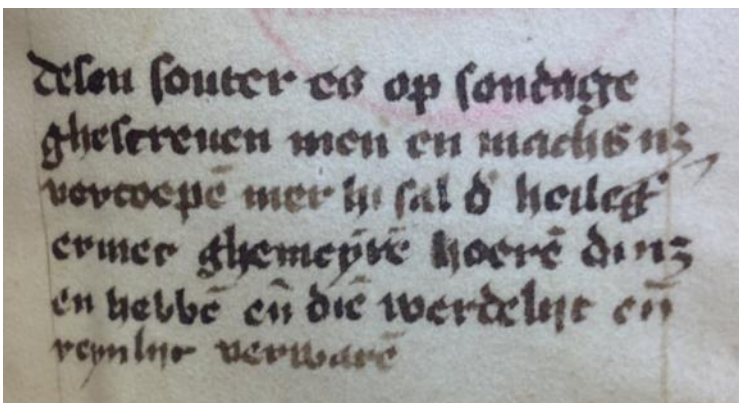 desen souter es op sondage
ghescreuen men en machs nʒ
vercoepē mer hi sal đ heileg̃
ermer ghemeỹtē hoerē dinʒ
en hebbē en̄ diē werdelijc en̄
reynlijc verwarē